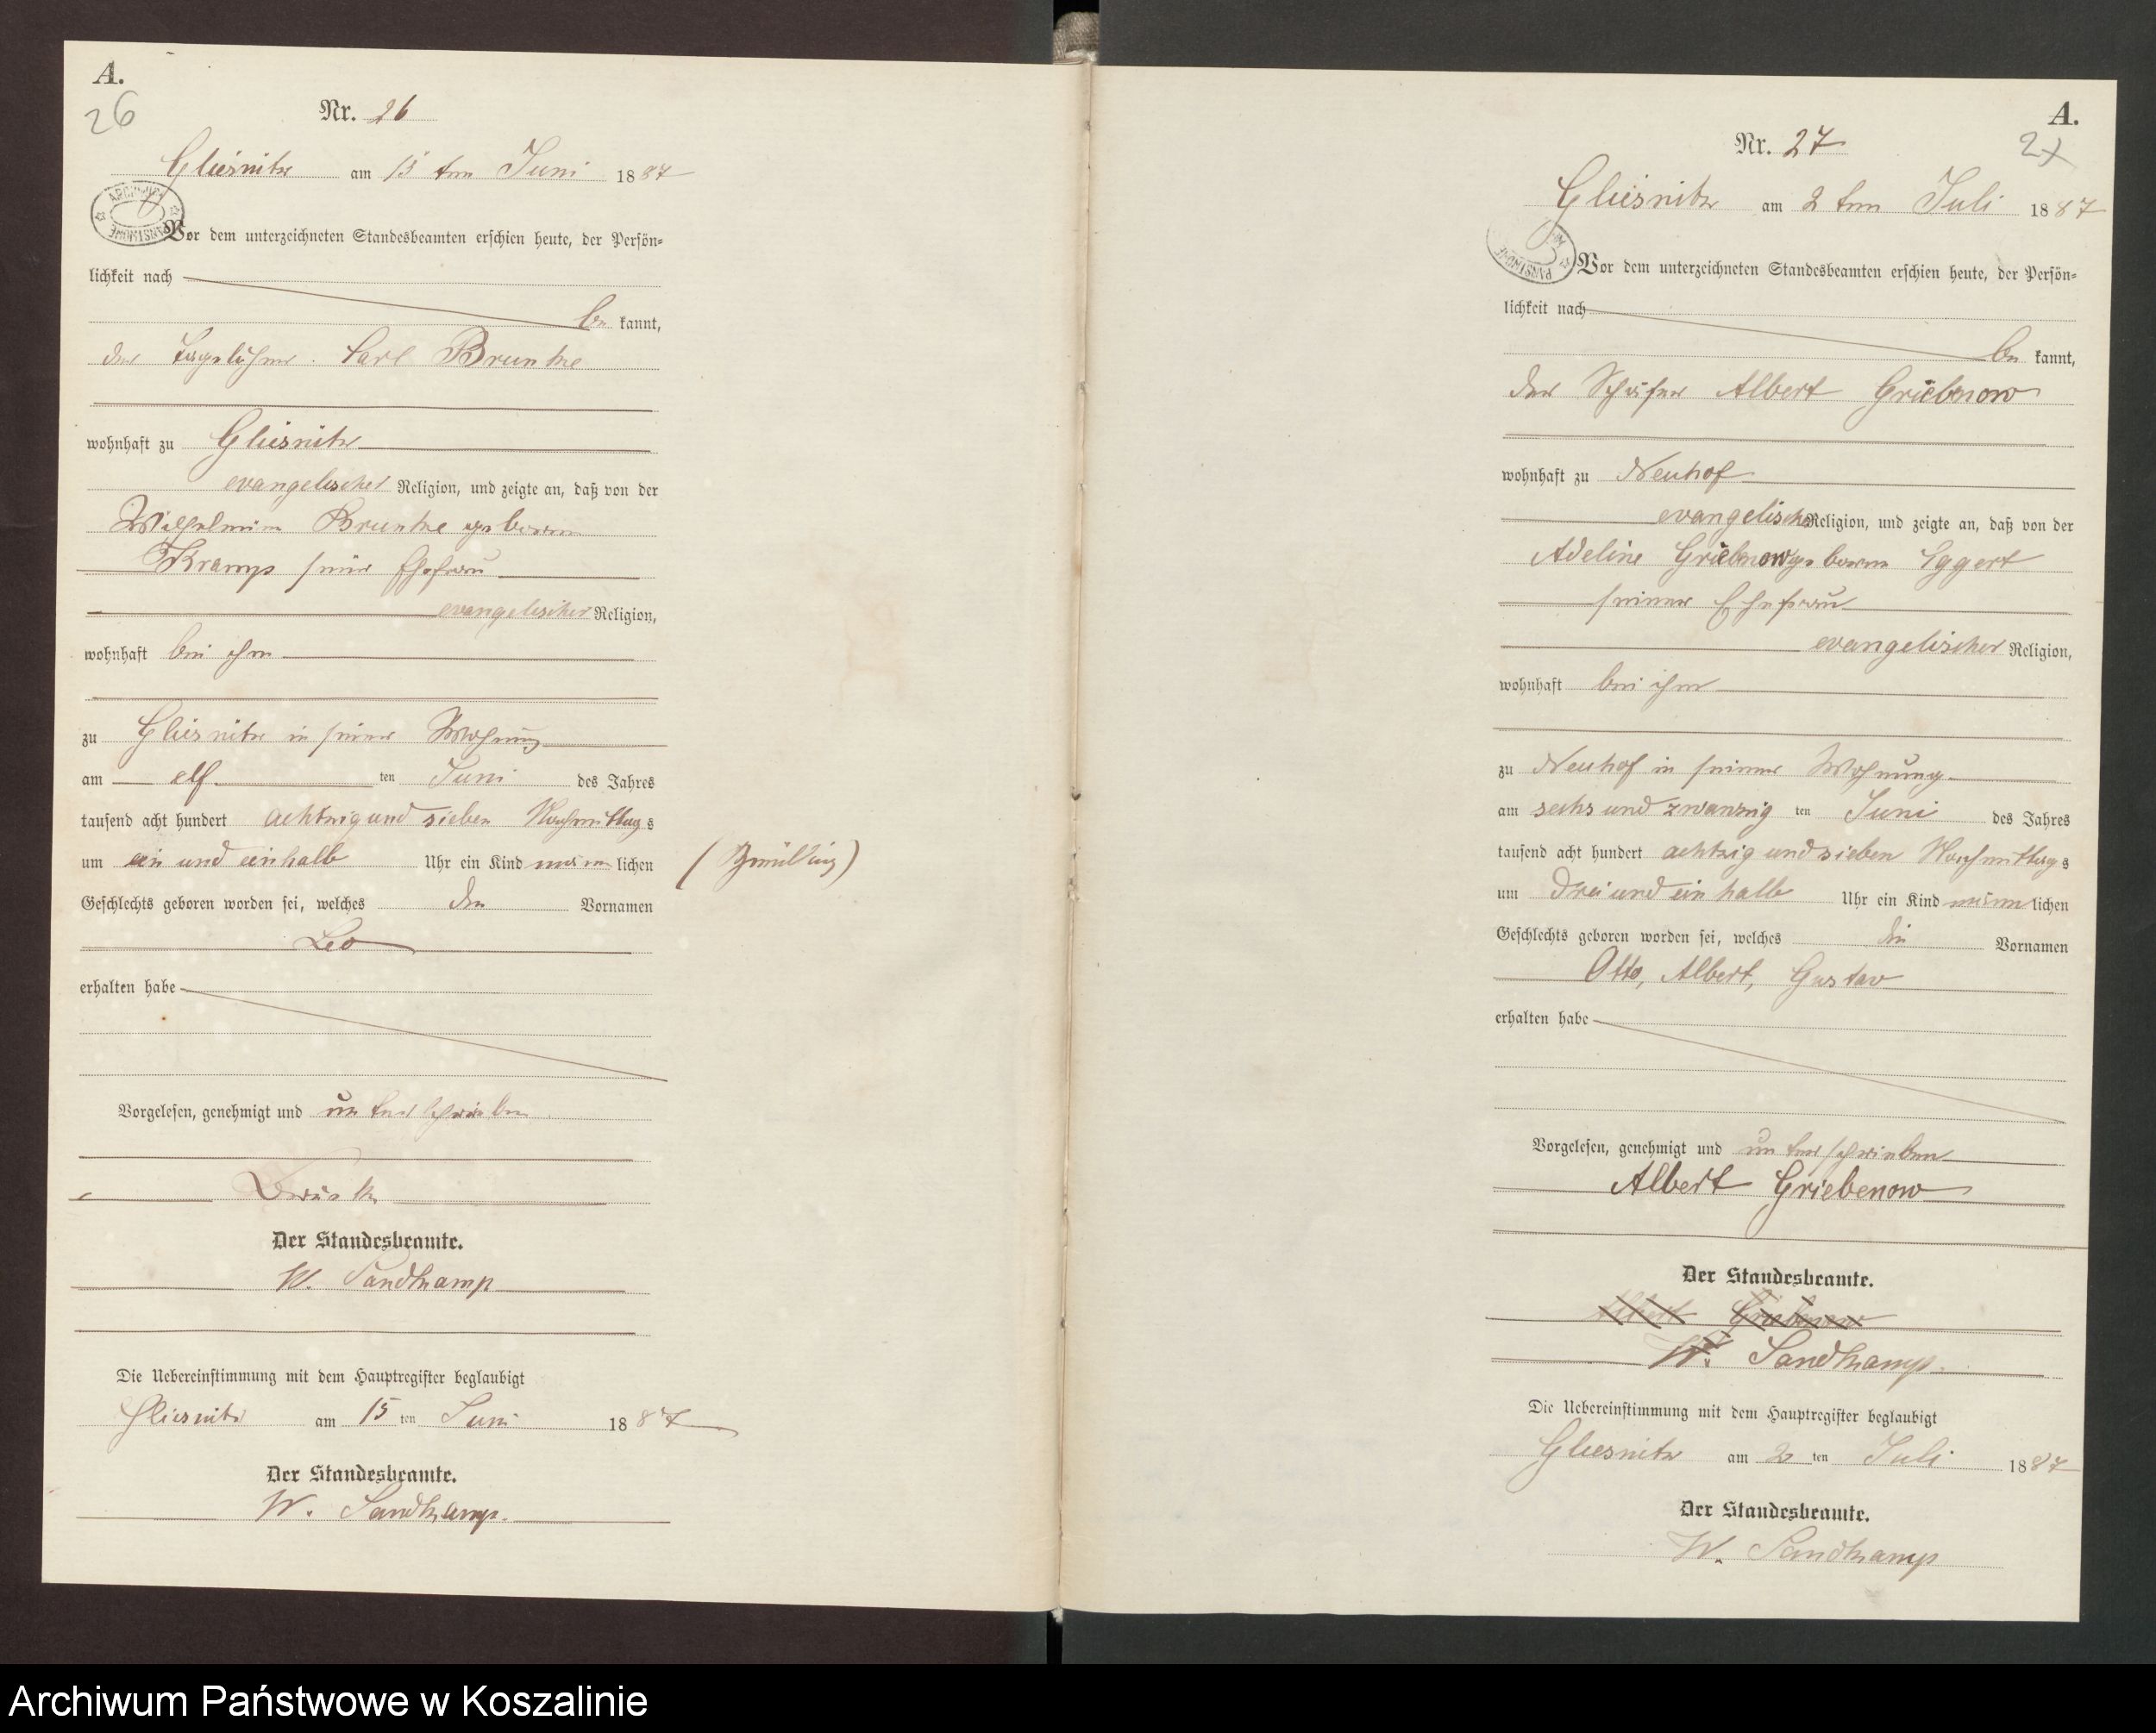 A.
26
Nr. 26
Gliesnitz am 15 ten Juni 1887
ARCHIWUM PAŃSTWOWE
Vor dem unterzeichneten Standesbeamten erschien heute, der Persön-
lichkeit nach
be kannt,
der Tagelöhner Carl Bruntze
wohnhaft zu Gliesnitz
evangelischer Religion, und zeigte an, daß von der
Wilhelmine Bruntze geborene
Kramp seine Ehefrau
evangelischer Religion,
wohnhaft bei ihm
zu Gliesnitz in seiner Wohnung
am elf ten Juni des Jahres
tausend acht hundert achtzig und sieben Nachmittags
um ein und einhalb Uhr ein Kind männlichen
(Zwilling)
Geschlechts geboren worden sei, welches den Vornamen
Leo
erhalten habe
Vorgelesen, genehmigt und unterschrieben
Der Standesbeamte.
W. Sandkamp
Die Uebereinstimmung mit dem Hauptregister beglaubigt
Gliesnitz am 15 ten Juni 1887
Der Standesbeamte.
W. Sandkamp.
A.
27
Nr. 27
Gliesnitz am 2 ten Juli 1887
PAŃSTWOWE
Vor dem unterzeichneten Standesbeamten erschien heute, der Persön-
lichkeit nach
be kannt,
der Schäfer Albert Griebenow
wohnhaft zu Neuhof
evangelischer Religion, und zeigte an, daß von der
Adeline Griebenow geboren Eggert
seiner Ehefrau
evangelischer Religion,
wohnhaft bei ihm
zu Neuhof in seiner Wohnung
am sechs und zwanzig ten Juni des Jahres
tausend acht hundert achtzig und sieben Nachmittags
um drei und ein halb Uhr ein Kind männlichen
Geschlechts geboren worden sei, welches die Vornamen
Otto, Albert, Gustav
erhalten habe
Vorgelesen, genehmigt und unterschrieben
Albert Griebenow
Der Standesbeamte.
Albert Griebenow
W. Sandkamp.
Die Uebereinstimmung mit dem Hauptregister beglaubigt
Gliesnitz am 2 ten Juli 1887
Der Standesbeamte.
W. Sandkamp
Archiwum Państwowe w Koszalinie